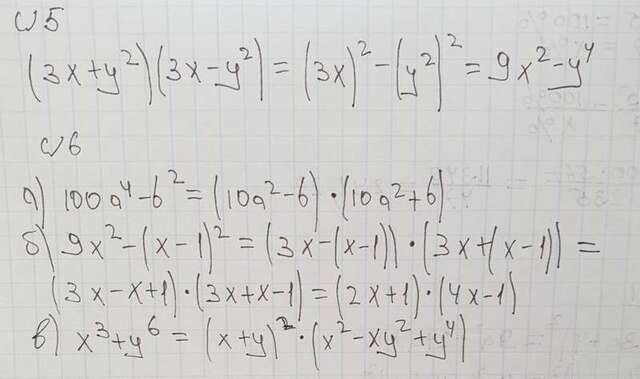 №5
(3x+y²)(3x-y²) = (3x)² - (y²)² = 9x² - y⁴
№6
а) 100a⁴ - b² = (10a² - b) · (10a² + b)
б) 9x² - (x-1)² = (3x-(x-1)) · (3x+(x-1)) =
(3x-x+1) · (3x+x-1) = (2x+1) · (4x-1)
в) x³+y⁶ = (x+y)² · (x²-xy²+y⁴)